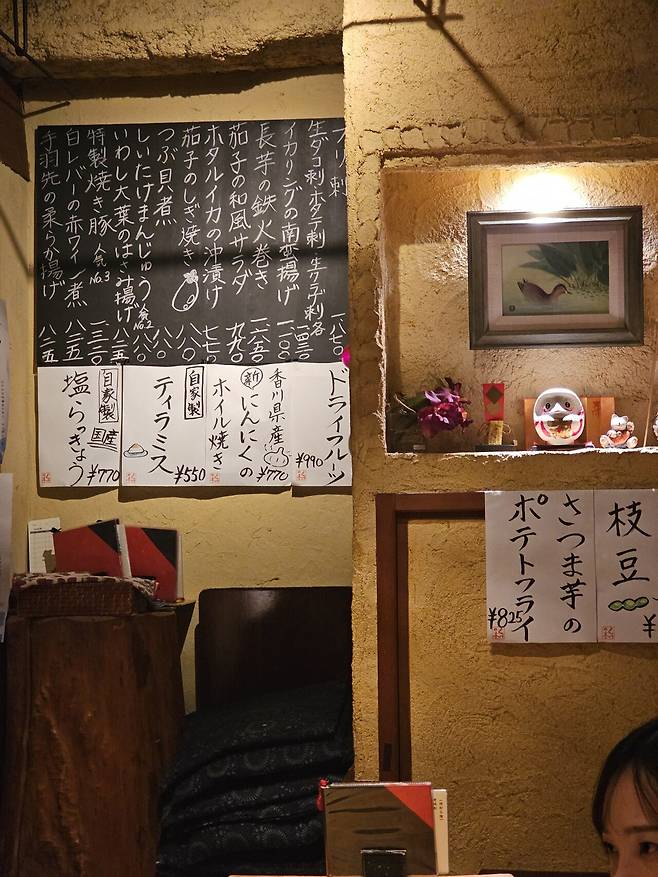 ブリ刺 一八七〇
生ダコ刺 ホタテ刺 生クラゲ刺 各 一四三〇
イカリングの南蛮揚げ 一一〇〇
長芋の鉄火巻き 一二六五〇
茄子の和風サラダ 九九〇
ホタルイカの沖漬け 七七〇
茄子のしぎ焼き 八八〇
つぶ貝煮 八八〇
しいたけまんじゅう 人気No.2 八八〇
いわし大葉のはさみ揚げ 八二五
特製焼き豚 人気No.3 一三二〇
白レバーの赤ワイン煮 八二五
手羽先の柔らか揚げ 八二五
ドライフルーツ ¥990
香川県産
新にんにくの
ホイル焼き ¥770
自家製
ティラミス ¥550
自家製
国産
塩らっきょう ¥770
枝豆 ¥
さつま芋の
ポテトフライ ¥825